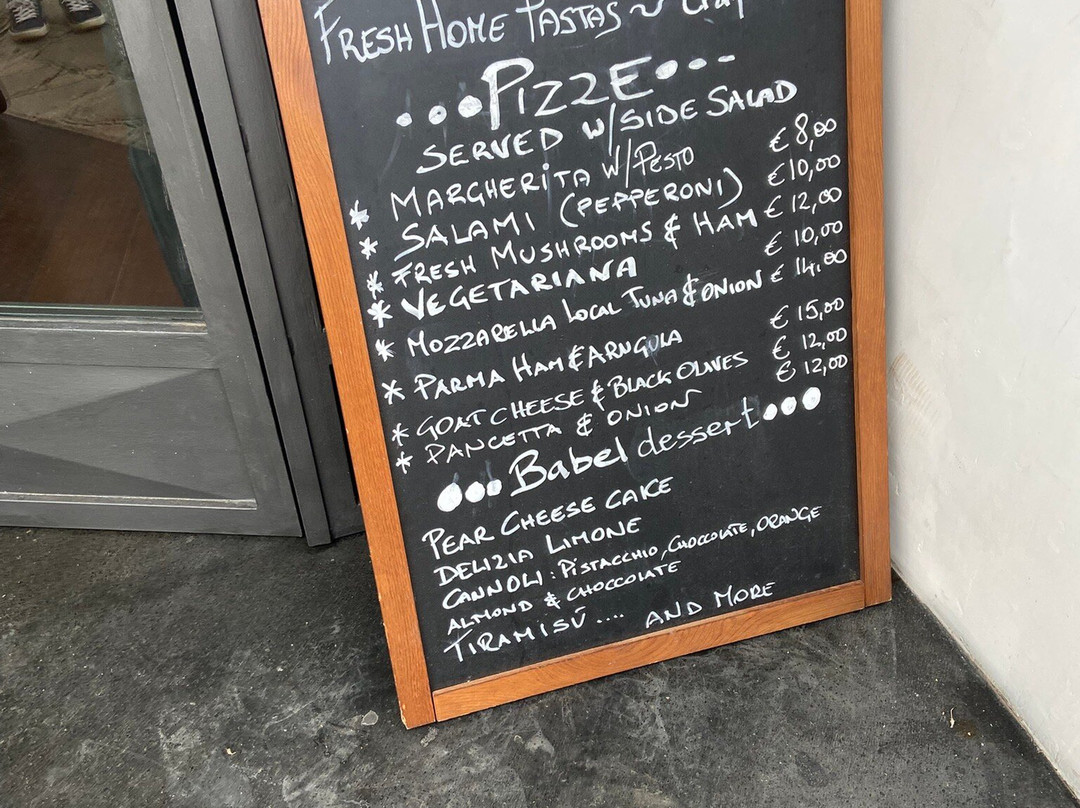 Fresh Home Pastas ~
...PIZZE...
SERVED W/SIDE SALAD
* MARGHERITA W/PESTO € 8,00
* SALAMI (PEPPERONI) €10,00
* FRESH MUSHROOMS & HAM € 12,00
* VEGETARIANA € 10,00
* MOZZARELLA LOCAL TUNA & ONION € 14,00
* PARMA HAM & ARNGULA € 15,00
* GOAT CHEESE & BLACK OLAVES € 12,00
* PANCETTA & ONION € 12,00
...Babel dessert...
PEAR CHEESE CAKE
DELIZIA LIMONE
CANNOLI: PISTACCHIO, CHOCCOLATE, ORANGE
ALMOND & CHOCCOLATE
TIRAMISÚ .... AND MORE